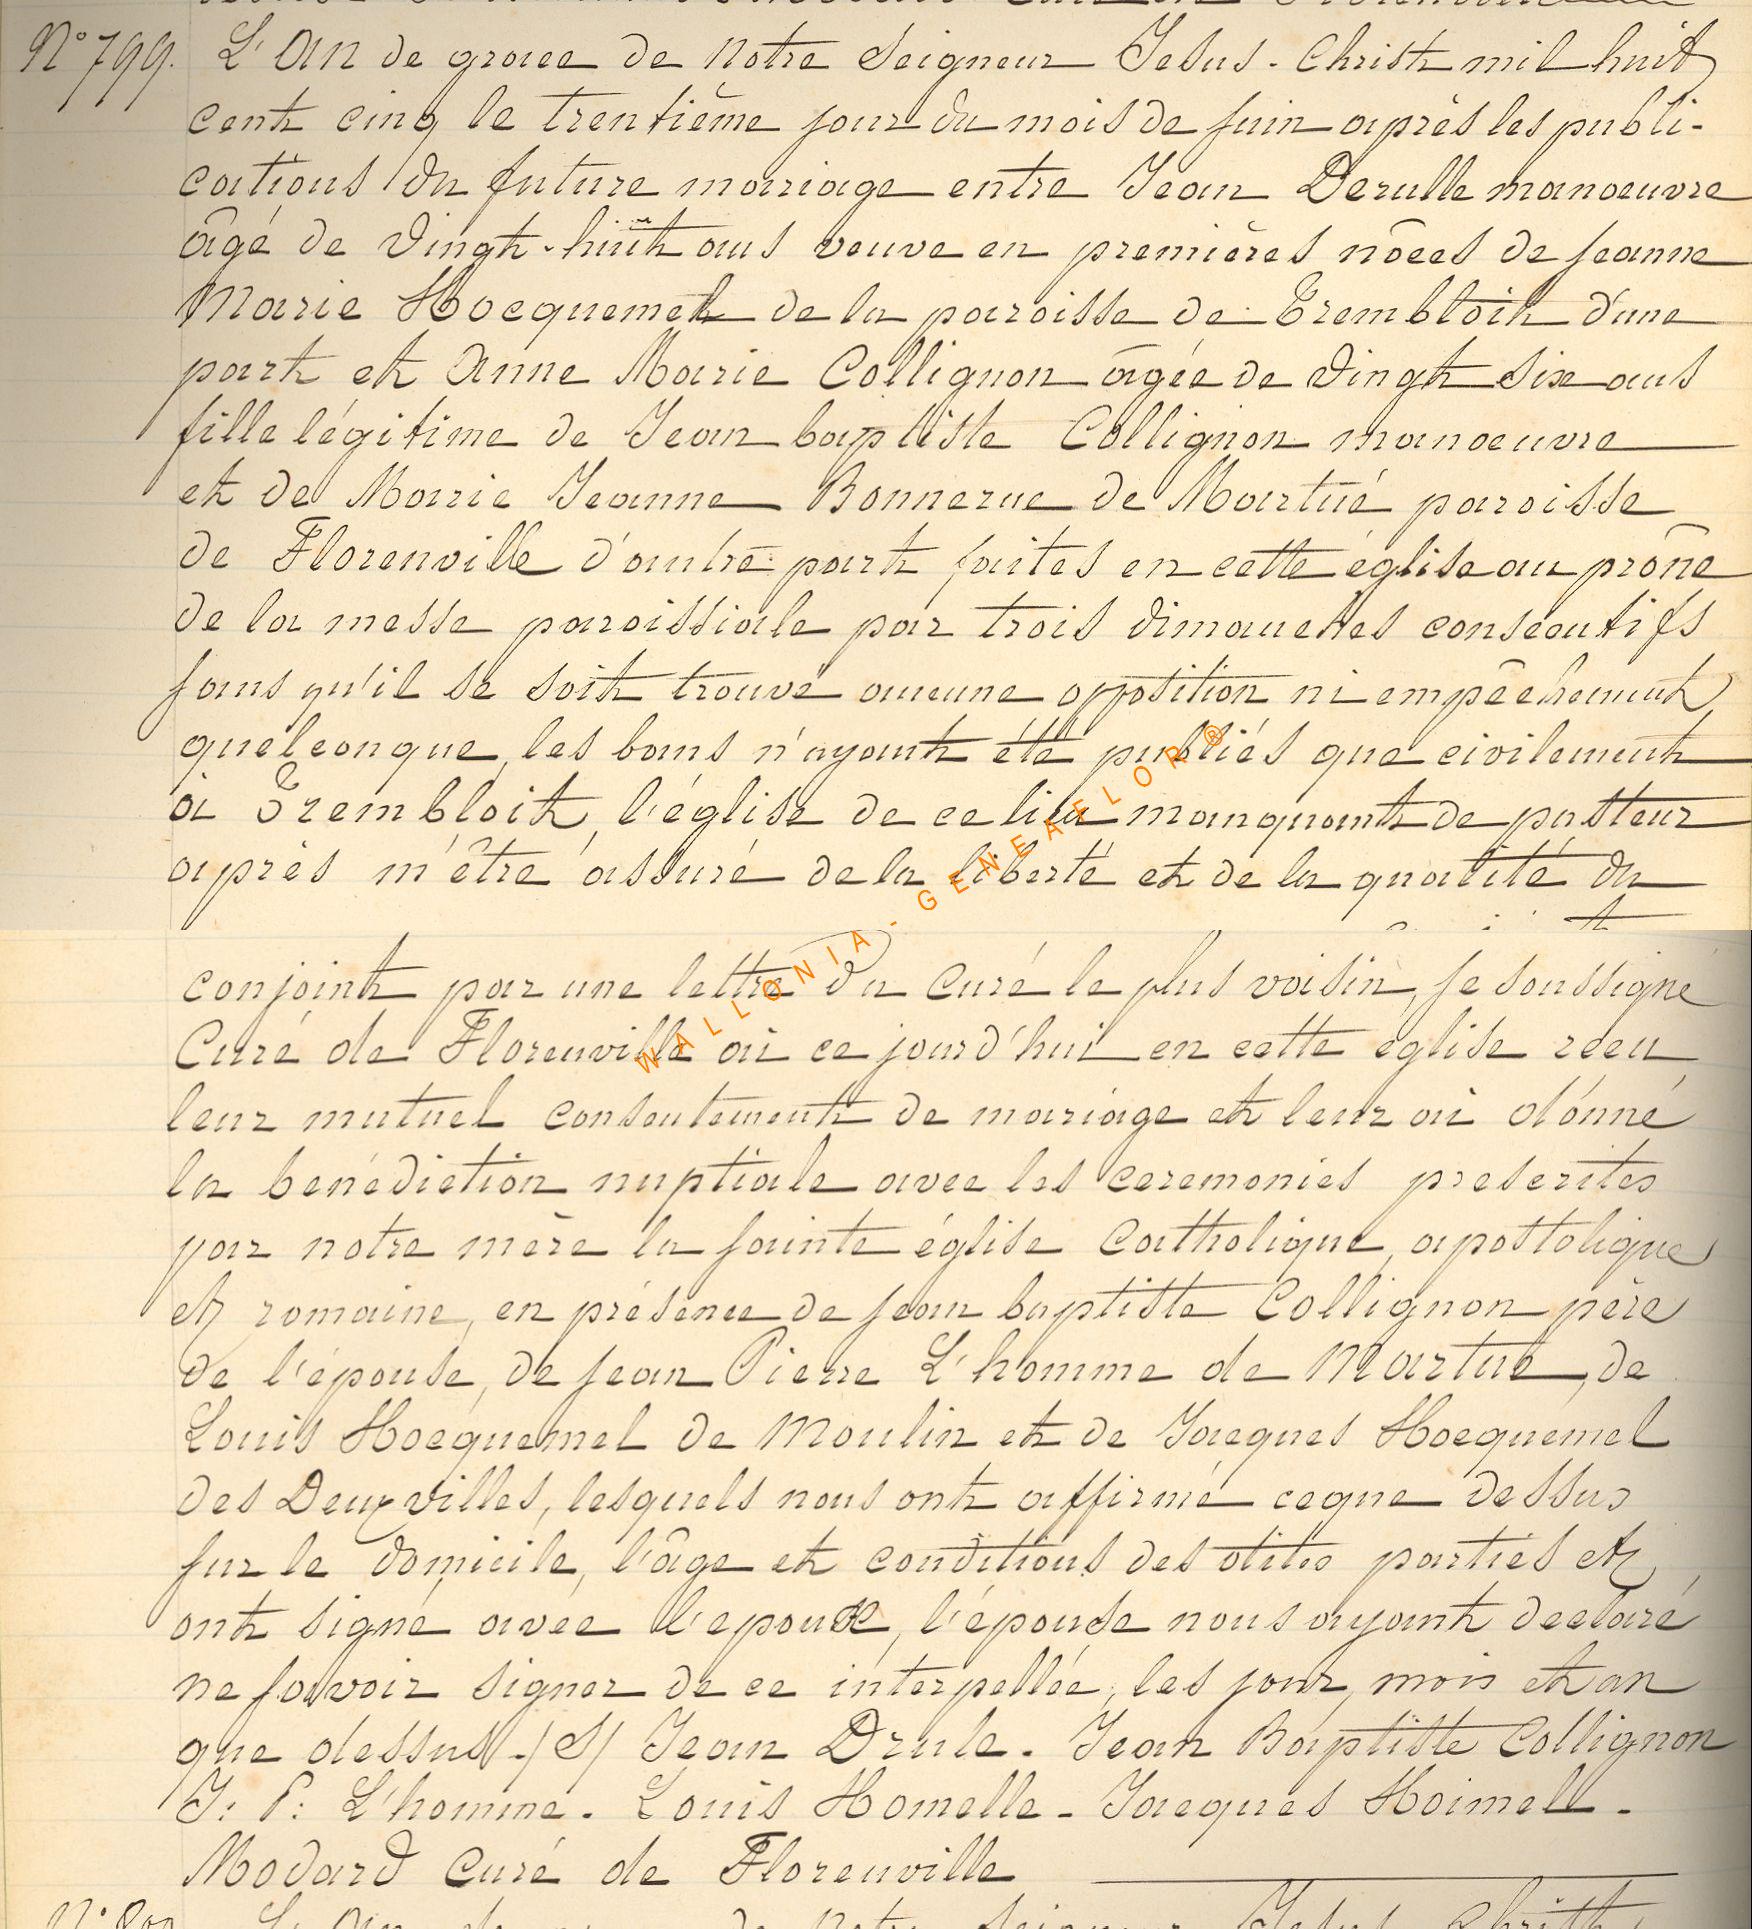 N° 799. L'An de grace de Notre Seigneur Jesus-Christ mil huit
cent cinq le trentième jour du mois de juin après les publi-
cations du future mariage entre Jean Derulle manoeuvre
âgé de vingt-huit ans veuve en premières nôces de jeanne
Marie Hocquemel de la paroisse de Trembloit d'une
part et Anne Marie Collignon âgée de vingt six ans
fille légitime de Jean baptiste Collignon manoeuvre
et de Marie Jeanne Bonnerue de Martué paroisse
de Florenville d'autre part faites en cette église au prône
de la messe paroissiale par trois dimanches consécutifs
sans qu'il se soit trouvé aucune opposition ni empêchement
quelconque, les bans n'ayant été publiés que civilement
à Trembloit, l'église de ce lieu manquant de pasteur
après m'être assuré de la liberté et de la qualité du
conjoint par une lettre du Curé le plus voisin, je soussigné
Curé de Florenville ai ce jourd'hui en cette église recu
leur mutuel consentement de mariage et leur ai donné
la benédiction nuptiale avec les ceremonies prescrites
par notre mère la sainte église Catholique, apostolique
et romaine, en présence de jean baptiste Collignon père
de l'épouse, de jean Pierre L'homme de Martué, de
Louis Hocquemel de Moulin et de Jacques Hocquemel
des Deuxvilles, lesquels nous ont affirmé ceque dessus
sur le domicile, l'âge et conditions des dites parties et
ont signé avec l'epoux, l'épouse nous ayant declaré
ne savoir signer de ce interpellée, les jour, mois et an
que dessus. /S/ Jean Drule. Jean Baptiste Collignon
J: P: L'homme. Louis Homelle - Jacques Hoimell.
Modard Curé de Florenville
WALLONIA-GENEAFLOR®
N° 800 L'An de Notre Seigneur Jesus Christ